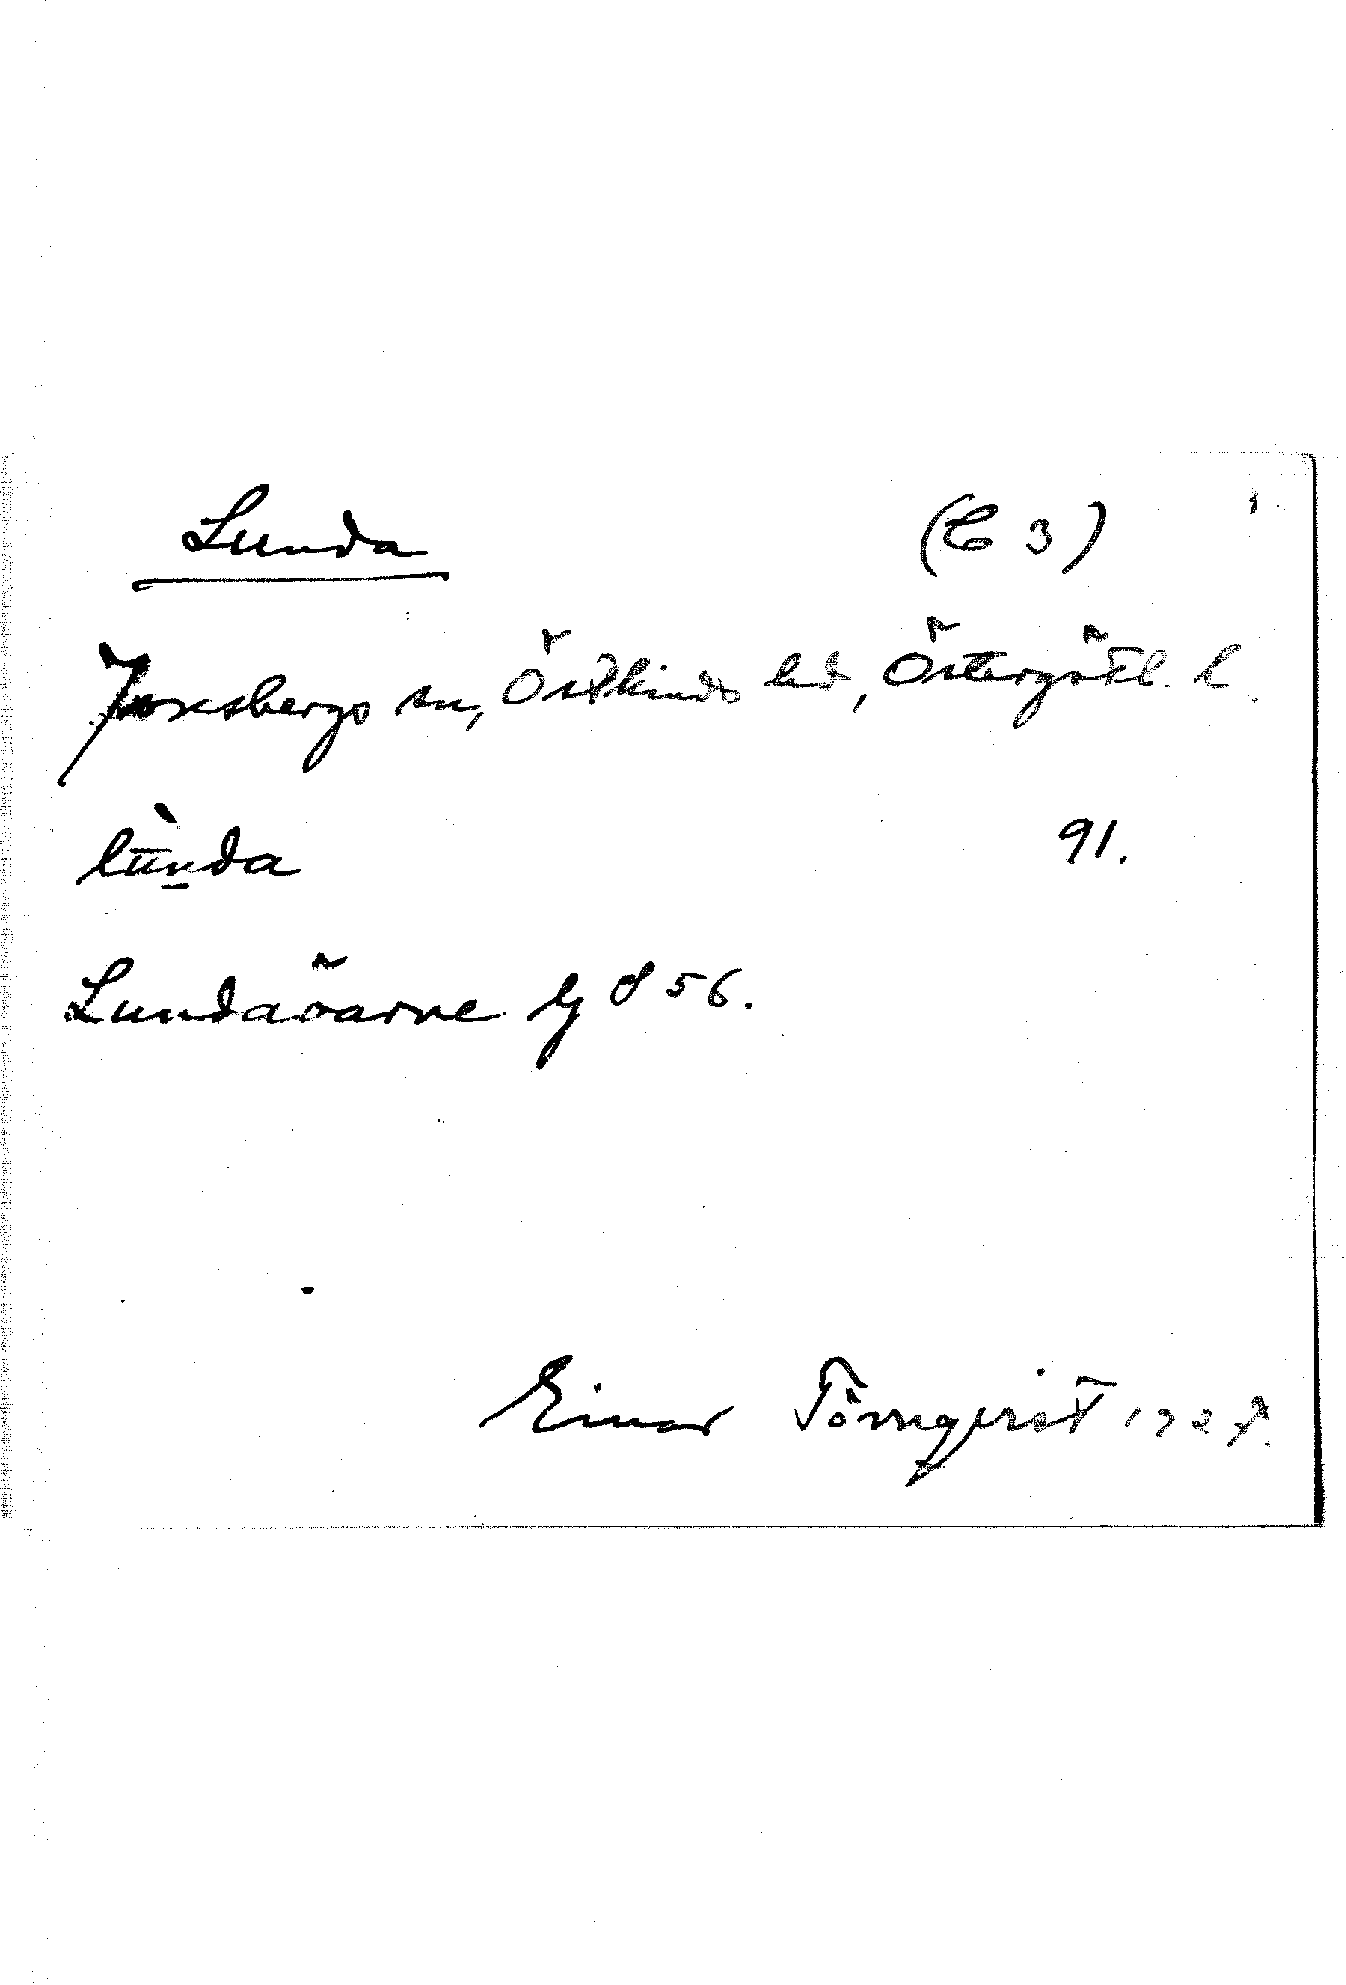 Lunda (C 3)
Jonsbergs sn, Östkinds hd, Östergötl. l.
lūn̲da 91.
Lundaöarne
Einar Törnqvist 1927.